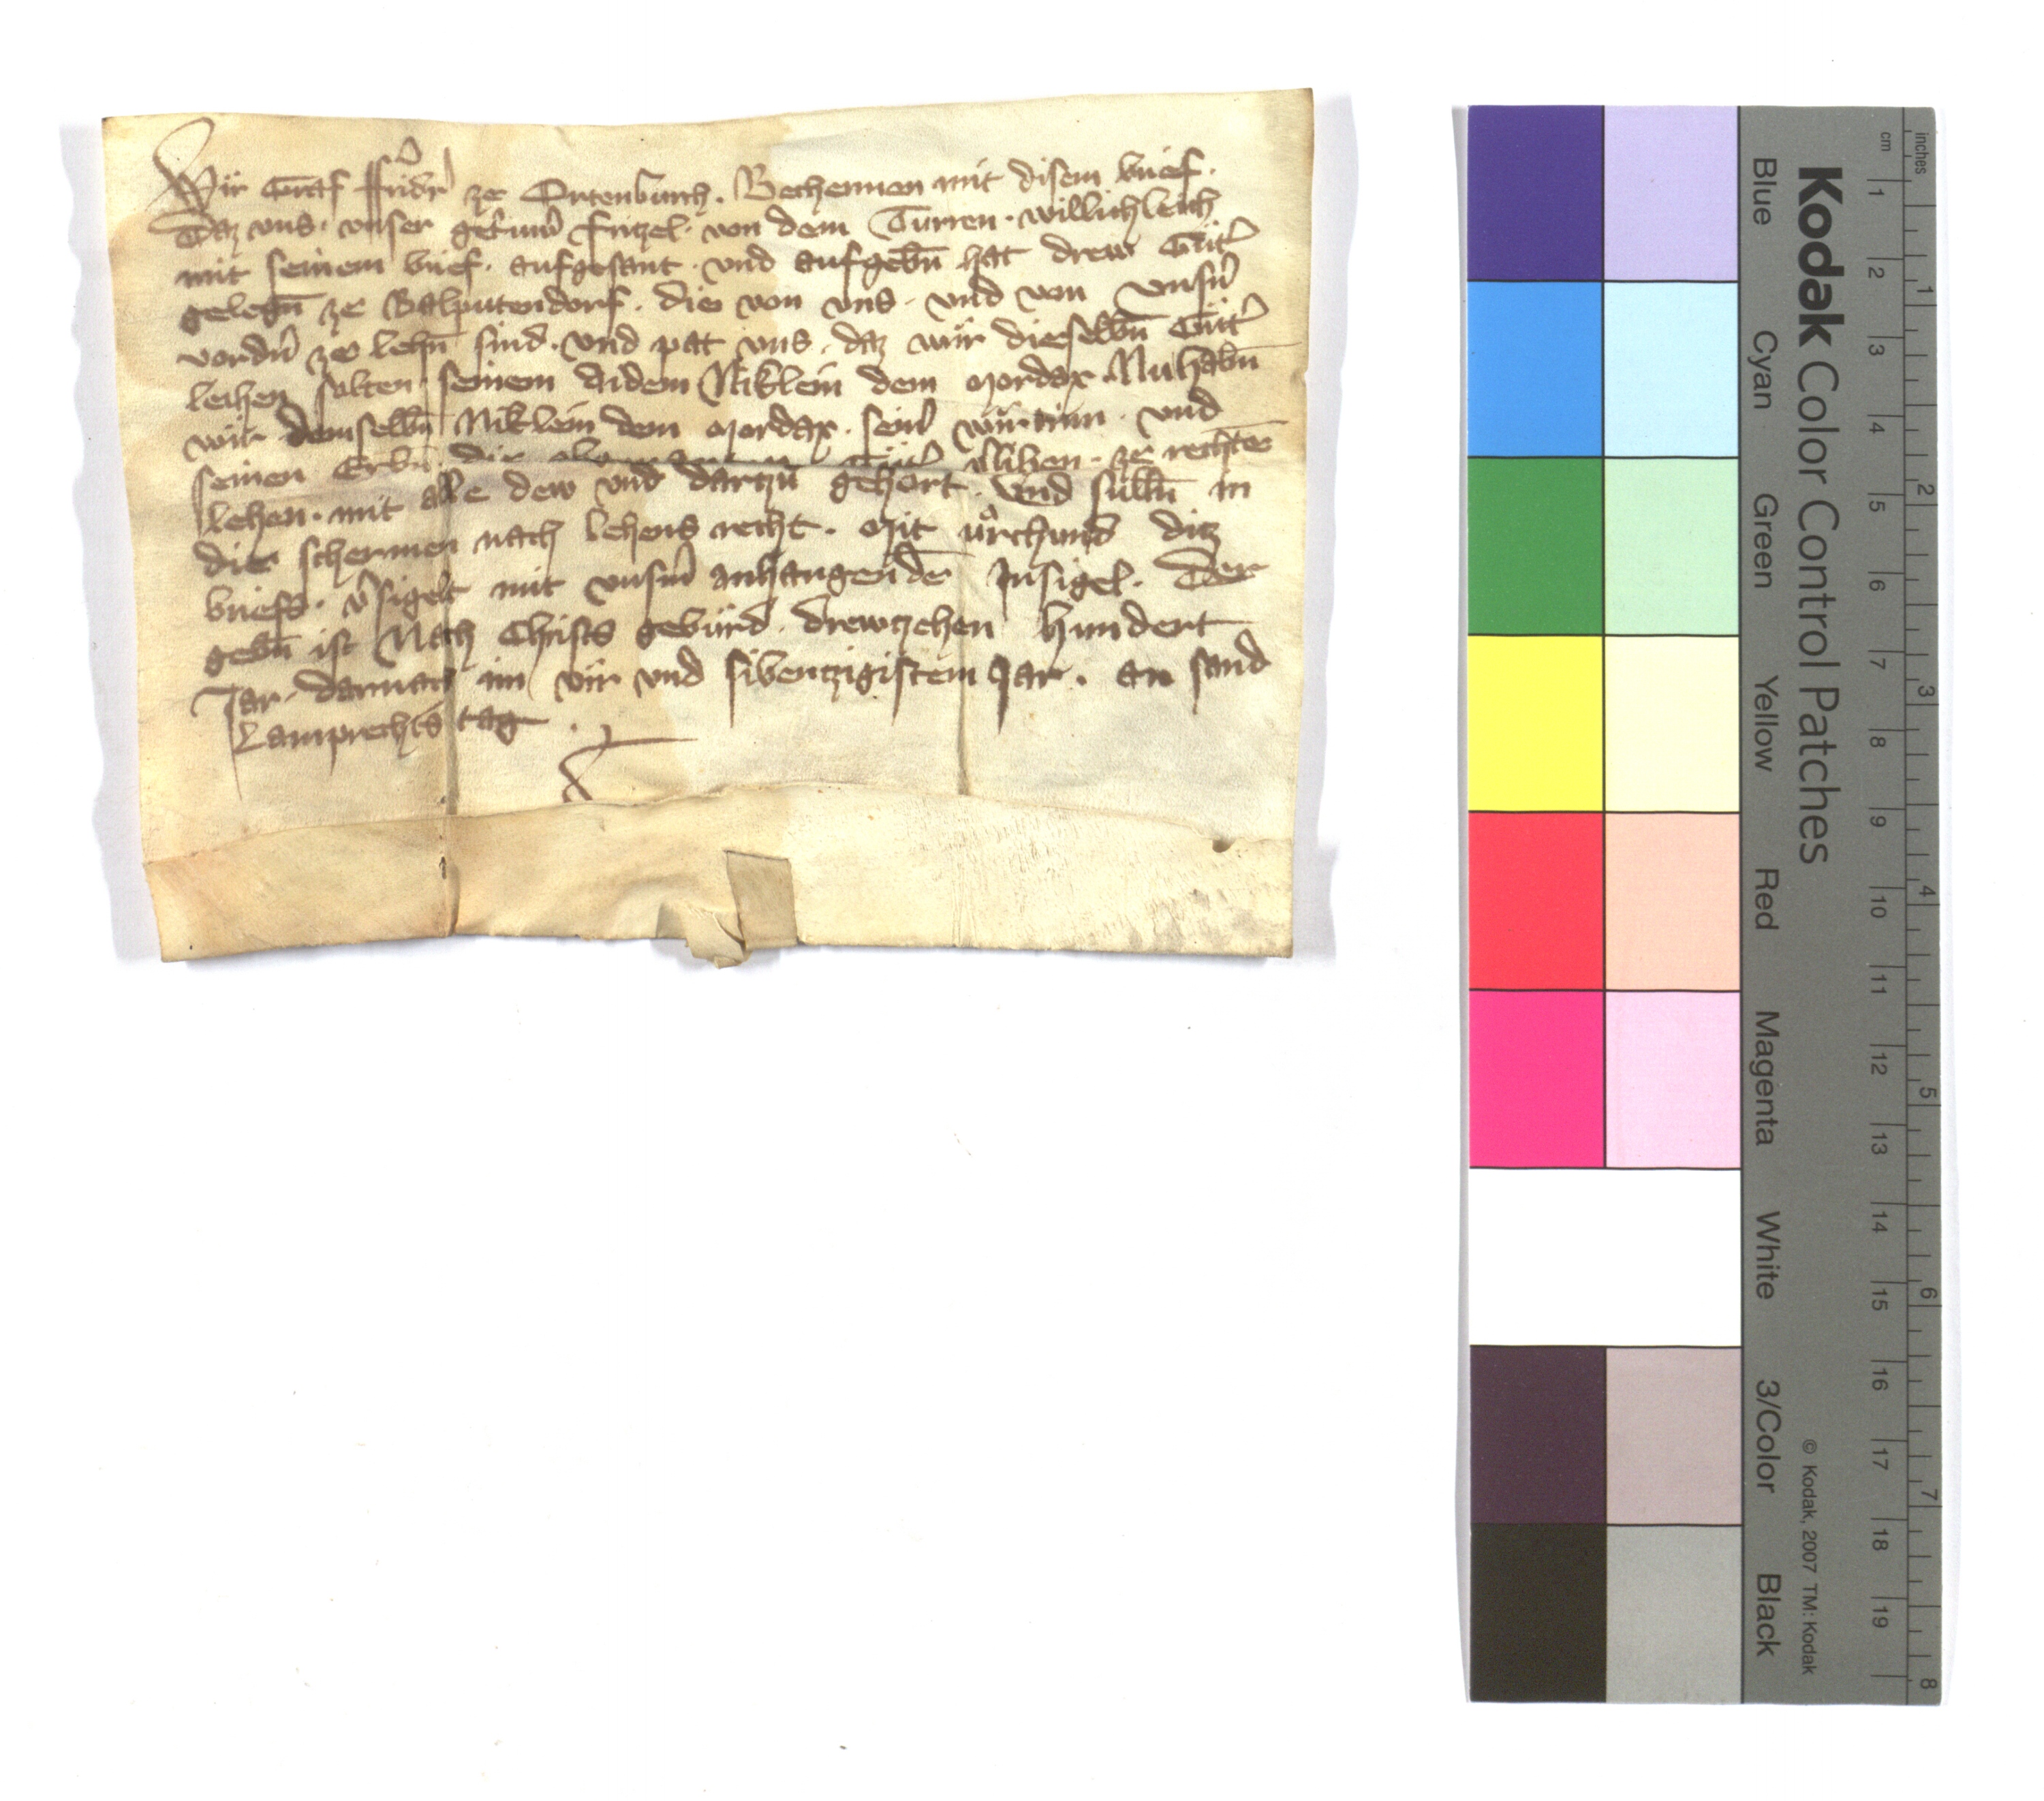 Wir Graf Fridr ze Ortenburch. Bechennen mit disem brief.
Daz vns. vnser getriwr Fritzel. von dem Turren. willichleich
mit seinem brief. aufgesant. vnd aufgebn hat drew Gůt
gelegn ze Balputendorf. die von vns. vnd von vnsn
vordn ze lehn sind. vnd pat vns. daz wir dieselbn Gůt
leihen solten seinem Aidem Niklein dem Mordax. Nu habn
wir demselbn Niklein dem Mordax. seinr wirtinn. vnd
seinen Erbn die Gůt ze rechte
lehen. mit alle dew vnd dartzu gehort. vnd sulln in
die schermen nach lehens recht. Mit vrchund ditz
briefs. vsigelt mit vnsm anhangende Insigel. Der
gebn ist Nach Christs gebürd. drewtzehen hundert
Jar. darnach im vir vnd sibentzigistem Jar. an sand
Lamprechts tag.
Kodak Color Control Patches
Blue
Cyan
Green
Yellow
Red
Magenta
White
3/Color
Black
© Kodak, 2007 TM: Kodak
cm 1 2 3 4 5 6 7 8 9 10 11 12 13 14 15 16 17 18 19
inches 1 2 3 4 5 6 7 8